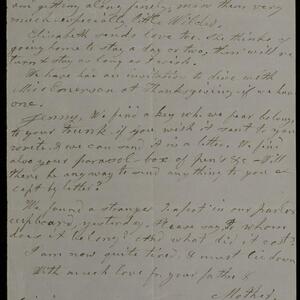 am getting along finely, miss them very
much especially little Wilder.
Elisabeth sends love too. She thinks of
going home to stay a day or two, then will re-
turn & stay as long as I wish.
We have had an invitation to dine with
Miss Emerson at Thanksgiving if we have
one.
Jenny, We find a key who we pose belongs
to your trunk if you wish it sent to you
write & we can send it in a letter. We find
also your parasol - box of pens &c - Will
there be any way to send any thing to you ex
cept by letter?
We found a strange Teapot in our parlor
cupboard, yesterday. Please say, to whom
does it belong? and what did it cost?
I am now quite tired & must lie down
With much love fr. your father &
Mother